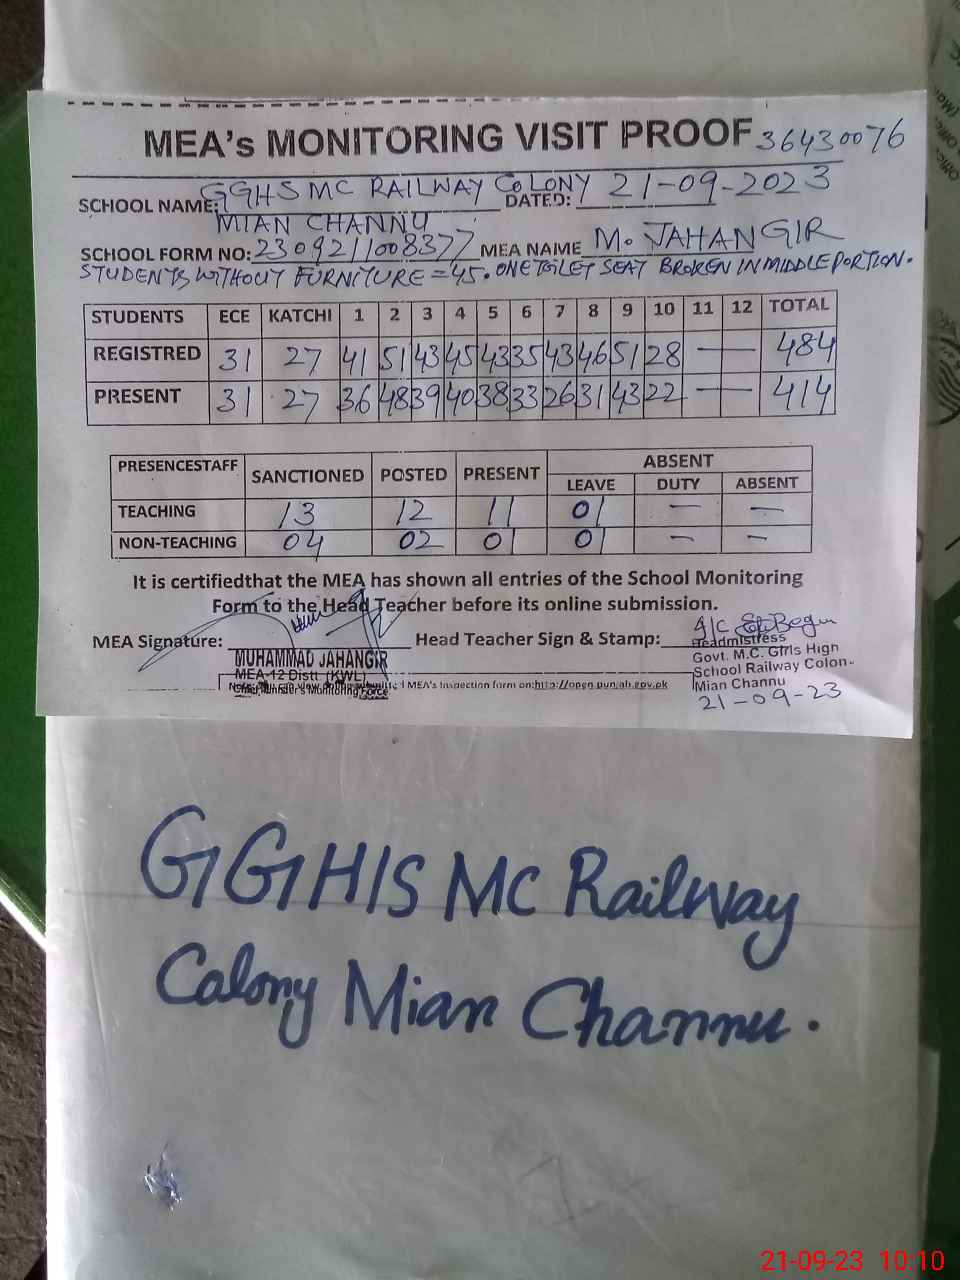 MEA's MONITORING VISIT PROOF 36430076
SCHOOL NAME: GGHS MC RAILWAY COLONY DATED: 21-09-2023
MIAN CHANNU
SCHOOL FORM NO: 2309211008377 MEA NAME M. JAHANGIR
STUDENTS WITHOUT FURNITURE = 45. ONE TOILET SEAT BROKEN IN MIDDLE PORTION.
STUDENTS ECE KATCHI 1 2 3 4 5 6 7 8 9 10 11 12 TOTAL
REGISTRED 31 27 41 51 43 45 43 35 43 46 51 28 — — 484
PRESENT 31 27 36 48 39 40 38 33 26 31 43 22 — — 414
PRESENCESTAFF SANCTIONED POSTED PRESENT ABSENT
LEAVE DUTY ABSENT
TEACHING 13 12 11 01 — —
NON-TEACHING 04 02 01 01 — —
It is certifiedthat the MEA has shown all entries of the School Monitoring
Form to the Head Teacher before its online submission.
MEA Signature: Head Teacher Sign & Stamp: I/C
MUHAMMAD JAHANGIR
MEA-12 Distt (KWL)
Monitoring Force
MEA's Inspection form on:http://open.punjab.gov.pk
Headmistress
Govt. M.C. Girls High
School Railway Colon
Mian Channu
21-09-23
GGHS MC Railway
Colony Mian Channu.
21-09-23 10:10